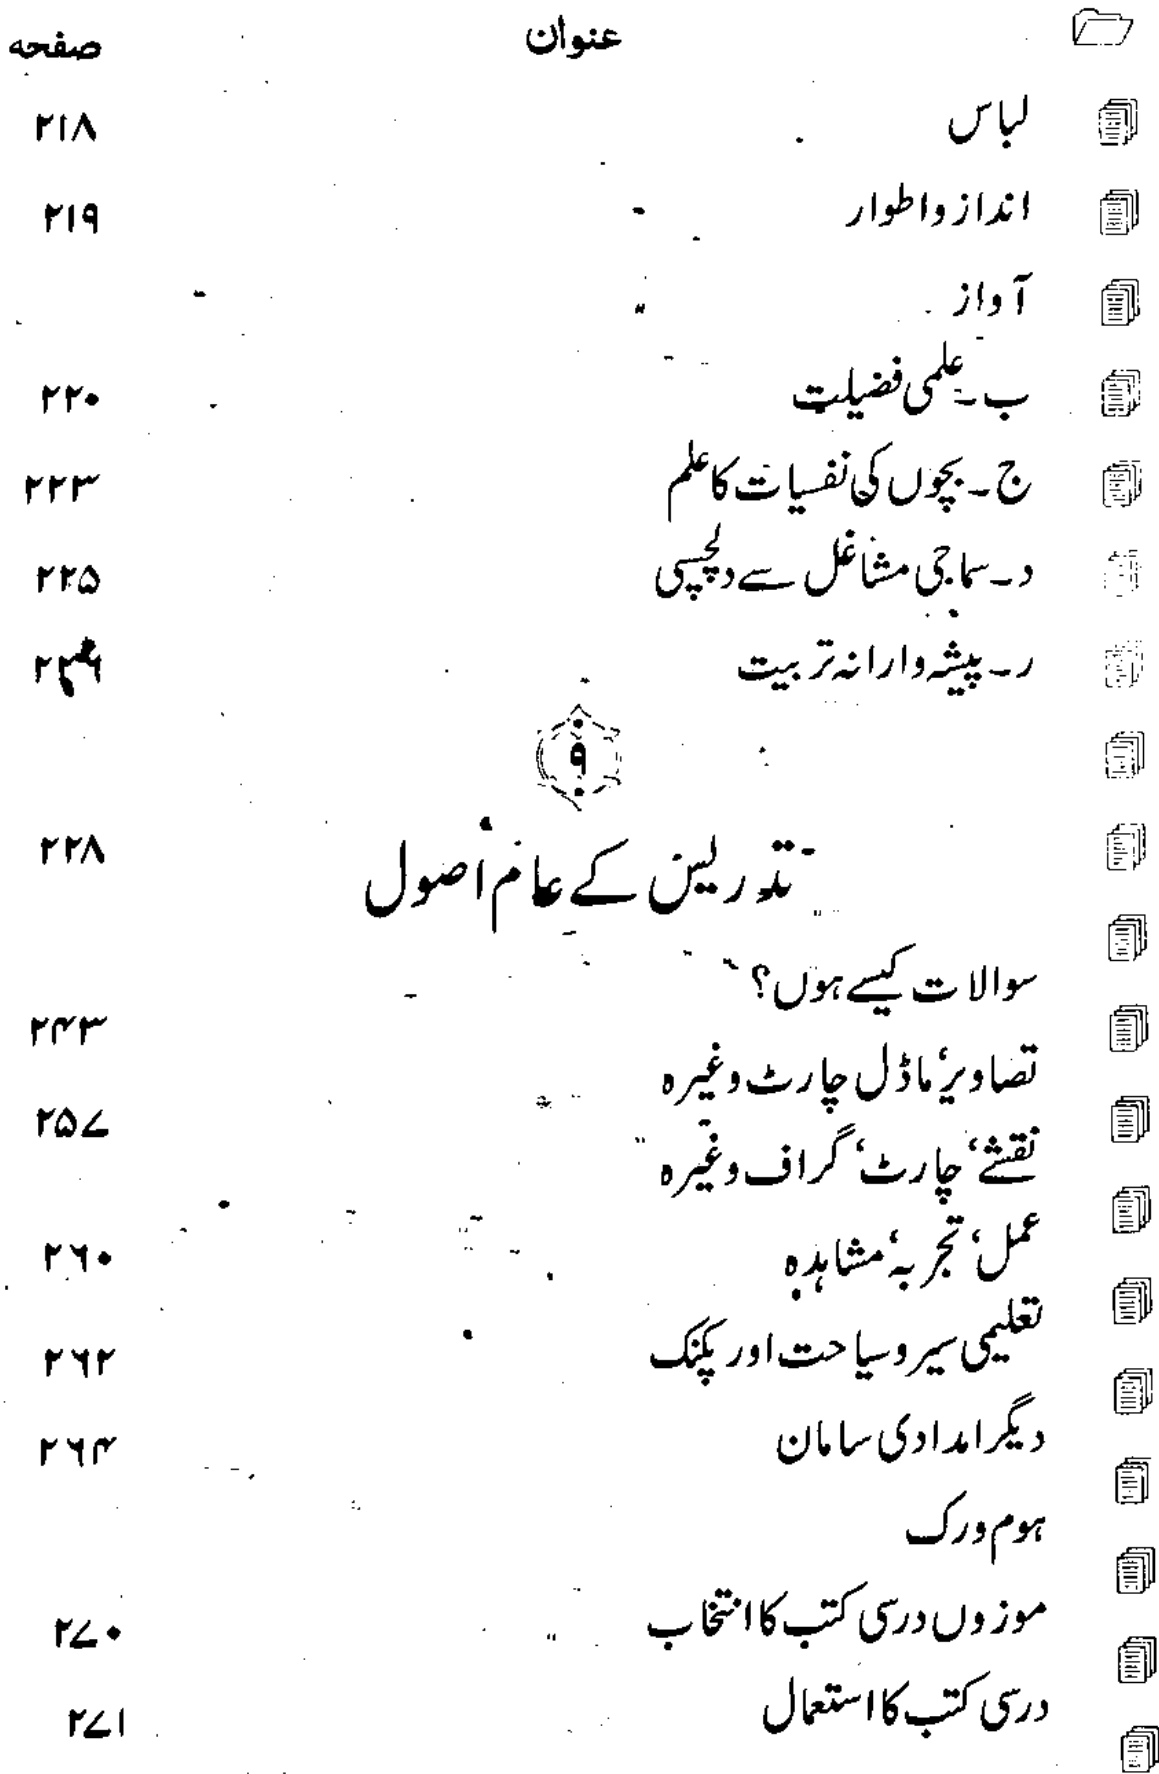 عنوان صفحہ
لباس ۲۱۸
انداز واطوار ۲۱۹
آواز
ب۔ علمی فضیلت ۲۲۰
ج۔ بچوں کی نفسیات کا علم ۲۲۳
د۔ سماجی مشاغل سے دلچسپی ۲۲۵
ر۔ پیشہ وارانہ تربیت
۹
تدریس کے عام اُصول ۲۲۸
سوالات کیسے ہوں؟
۲۴۳
تصاویر‘ ماڈل چارٹ وغیرہ
۲۵۷
نقشے‘ چارٹ‘ گراف وغیرہ
عمل‘ تجربہ‘ مشاہدہ ۲۶۰
تعلیمی سیر وسیاحت اور پکنک ۲۶۲
دیگر امدادی سامان ۲۶۴
ہوم ورک
موزوں درسی کتب کا انتخاب ۲۷۰
درسی کتب کا استعمال ۲۷۱